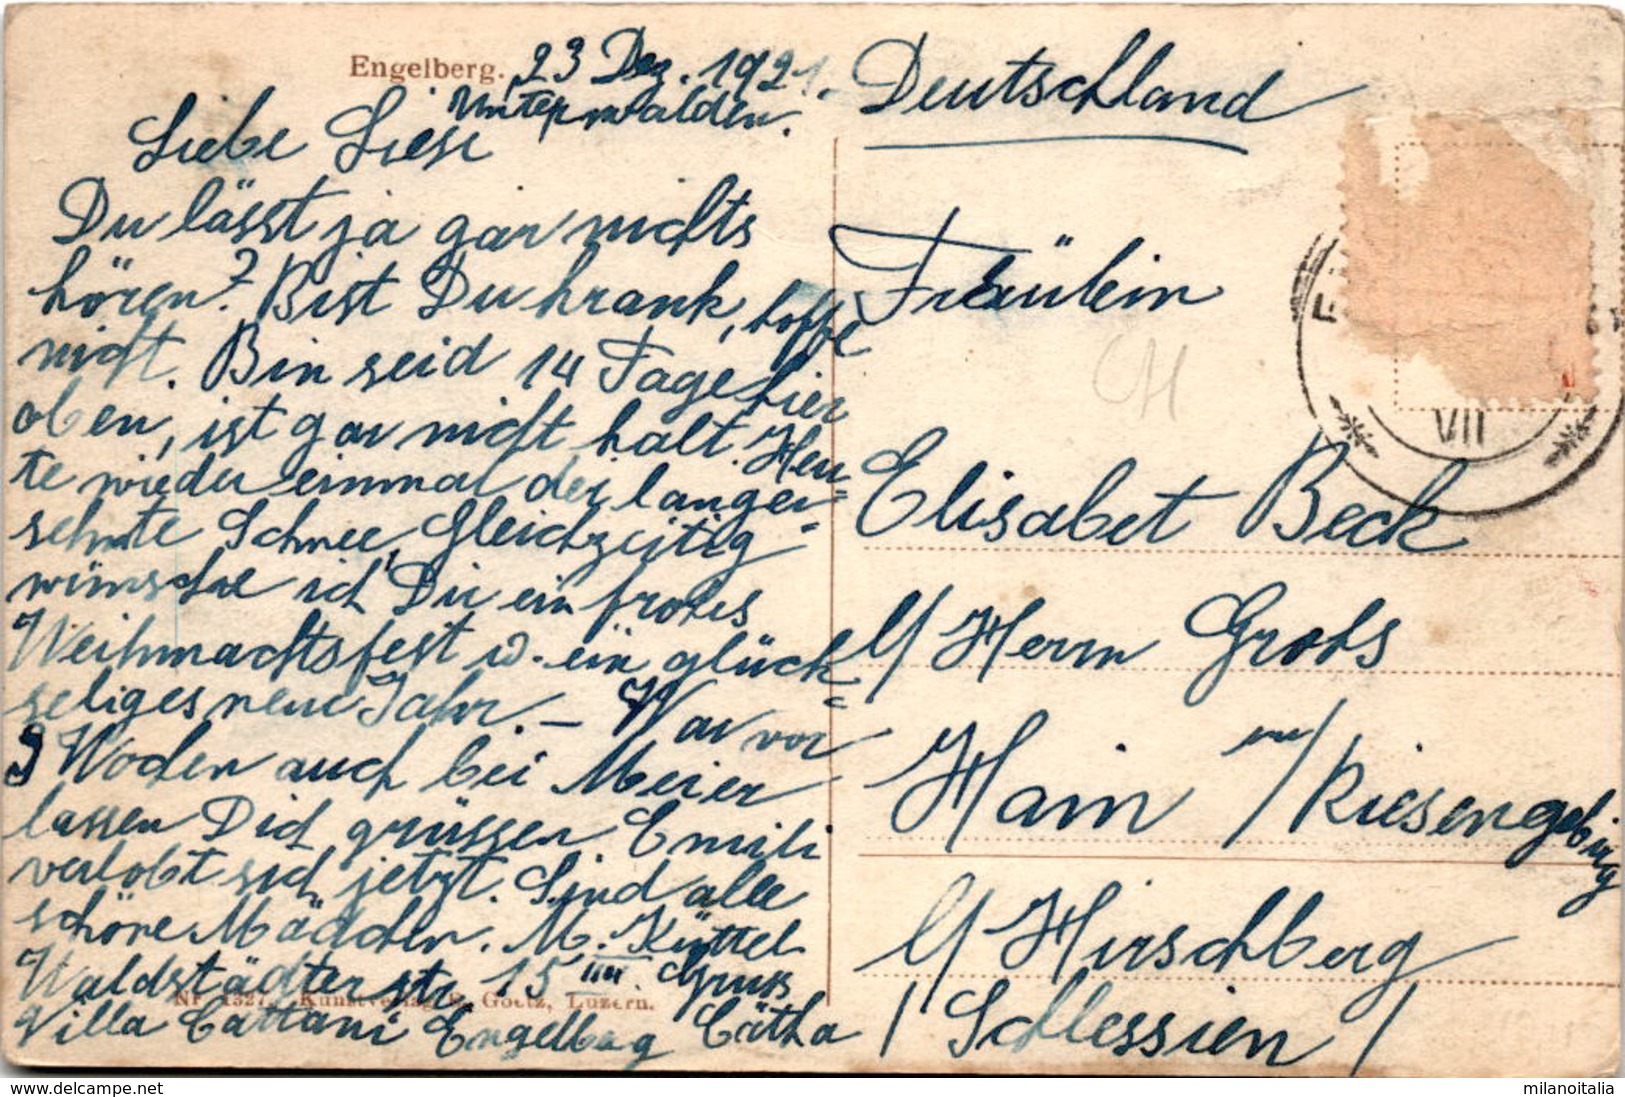 Engelberg. 23 Dez. 1921.
Unterwalden.
Liebe Liesi
Du lässt ja gar nichts
hören? Bist Du krank, hoffe
nicht. Bin seid 14 Tage hier
oben, ist gar nicht kalt. Heu=
te wieder einmal der langer=
sehnte Schnee, Gleichzeitig
wünsche ich Dir ein frohes
Weihnachtsfest u. ein glück=
seliges neue Jahr. – War vor
3 Wochen auch bei Meier
lassen Dich grüssen Emili
verlobt sich jetzt. Sind alle
schöne Mädchen. M. Küttel
Waldstädterstr 15 Gruss
Nr. 1327. Kunstverlag E. Goetz, Luzern.
Villa Cattani Engelberg Cätha
Deutschland
Fräulein
CH
VII
Elisabet Beck
b/ Herrn Grohs
Hain im/Riesengebirg
b/ Hirschberg
/Schlessien/
milanoitalia
milanoitalia www.delcampe.net